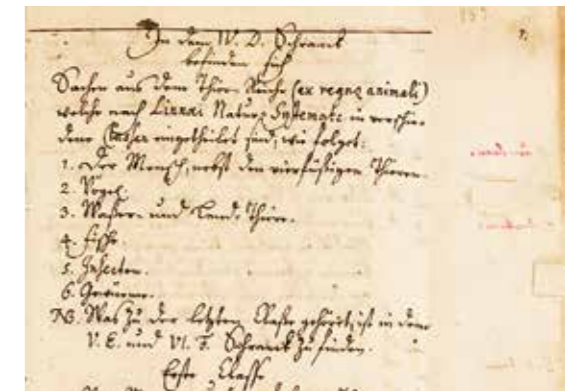 In dem IV. D. Schranck
befinden sich
Sachen aus dem Thier-Reiche (ex regno animali)
welche nach Linnæi Naturæ Systemate in verschie-
dene Classen eingetheilet sind, wie folget:
1. Der Mensch, nebst den vierfüßigen Thieren.
2. Vögel.
3. Waßer- und Land-Thiere.
4. Fische.
5. Insecten.
6. Gewürme.
NB. Was zu der letzten Classe gehöret, ist in dem
V. E. und VI. F. Schranck zu finden.
Erste Classe